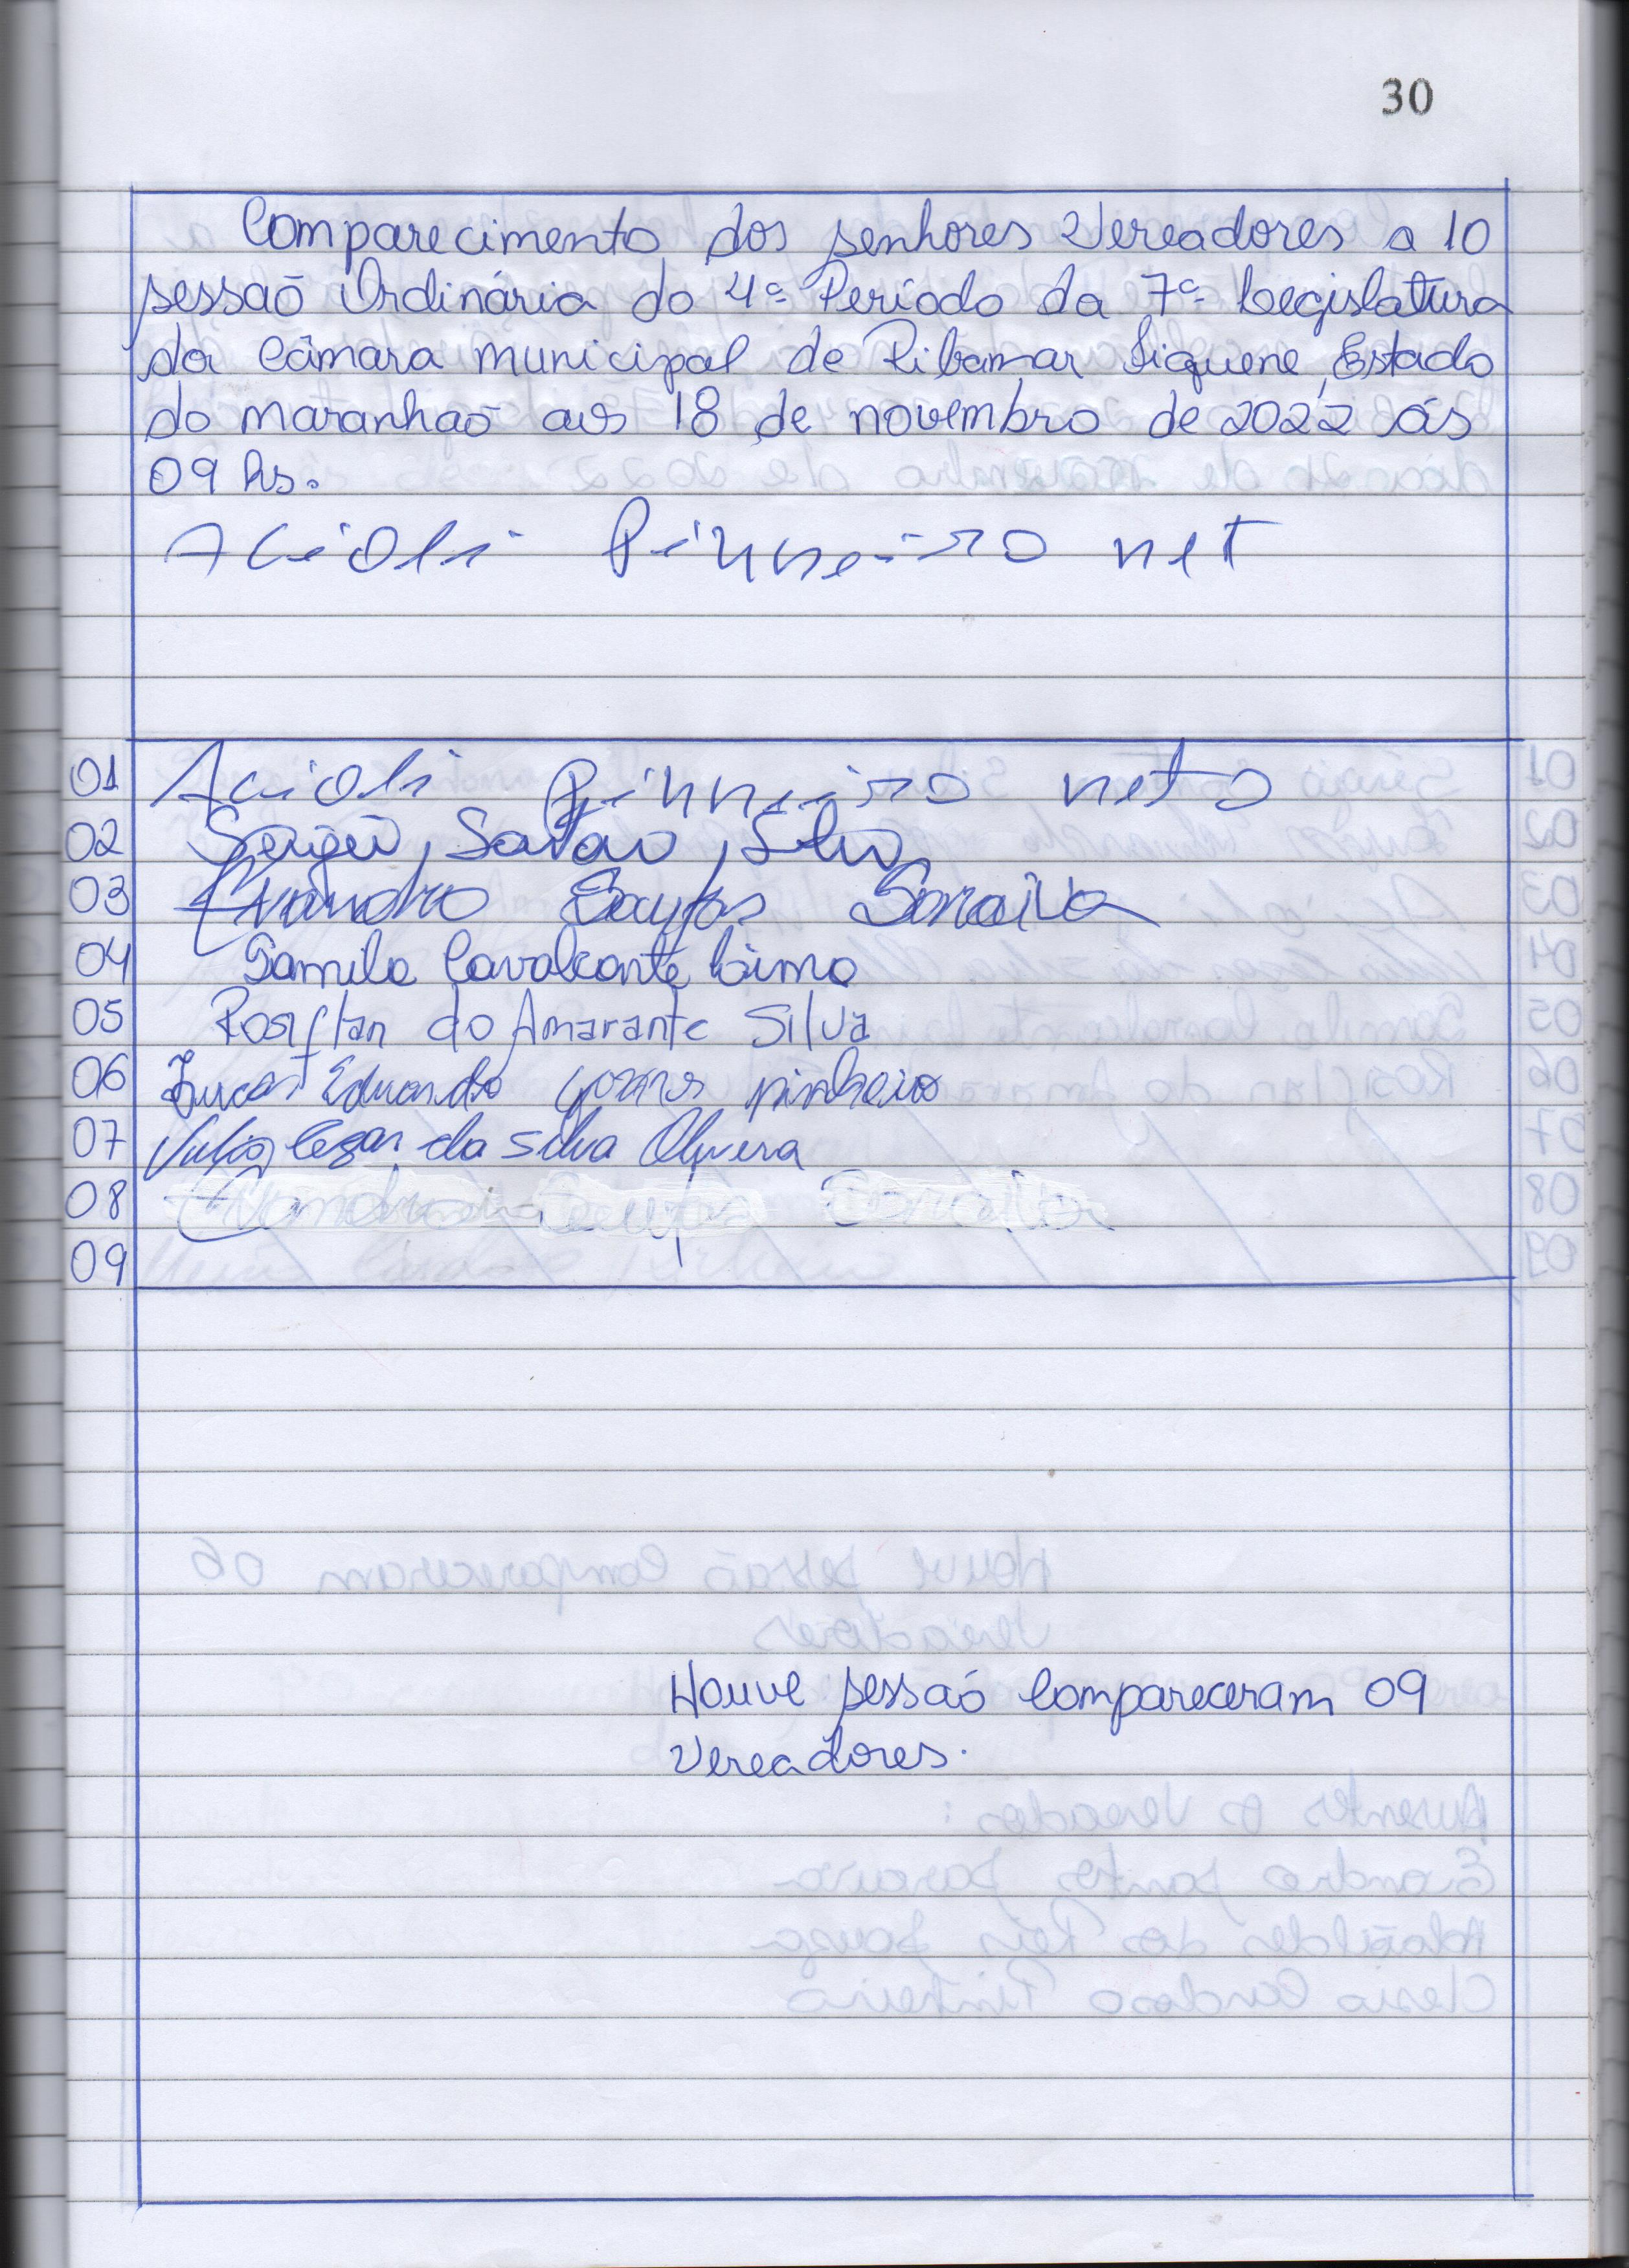 30
Comparecimento dos senhores Vereadores a 10
sessão Ordinária do 4º Período da 7ª Legislatura
da Câmara municipal de Ribamar Fiquene, Estado
do maranhão aos 18 de novembro de 2022 ás
09 hs.
Acioli Pinheiro net
01 Acioli Pinnheiro neto
02 Silva
03 Evandro Santos Saraiva
04 Samila Cavalcante Lima
05 Rosiflan do Amarante Silva
06 Lucas Eduardo gomes pinheiro
07 Julio Cezar da Silva Oliveira
08 Evandro Santos Saraiva
09
Houve sessão Compareceram 09
Vereadores.